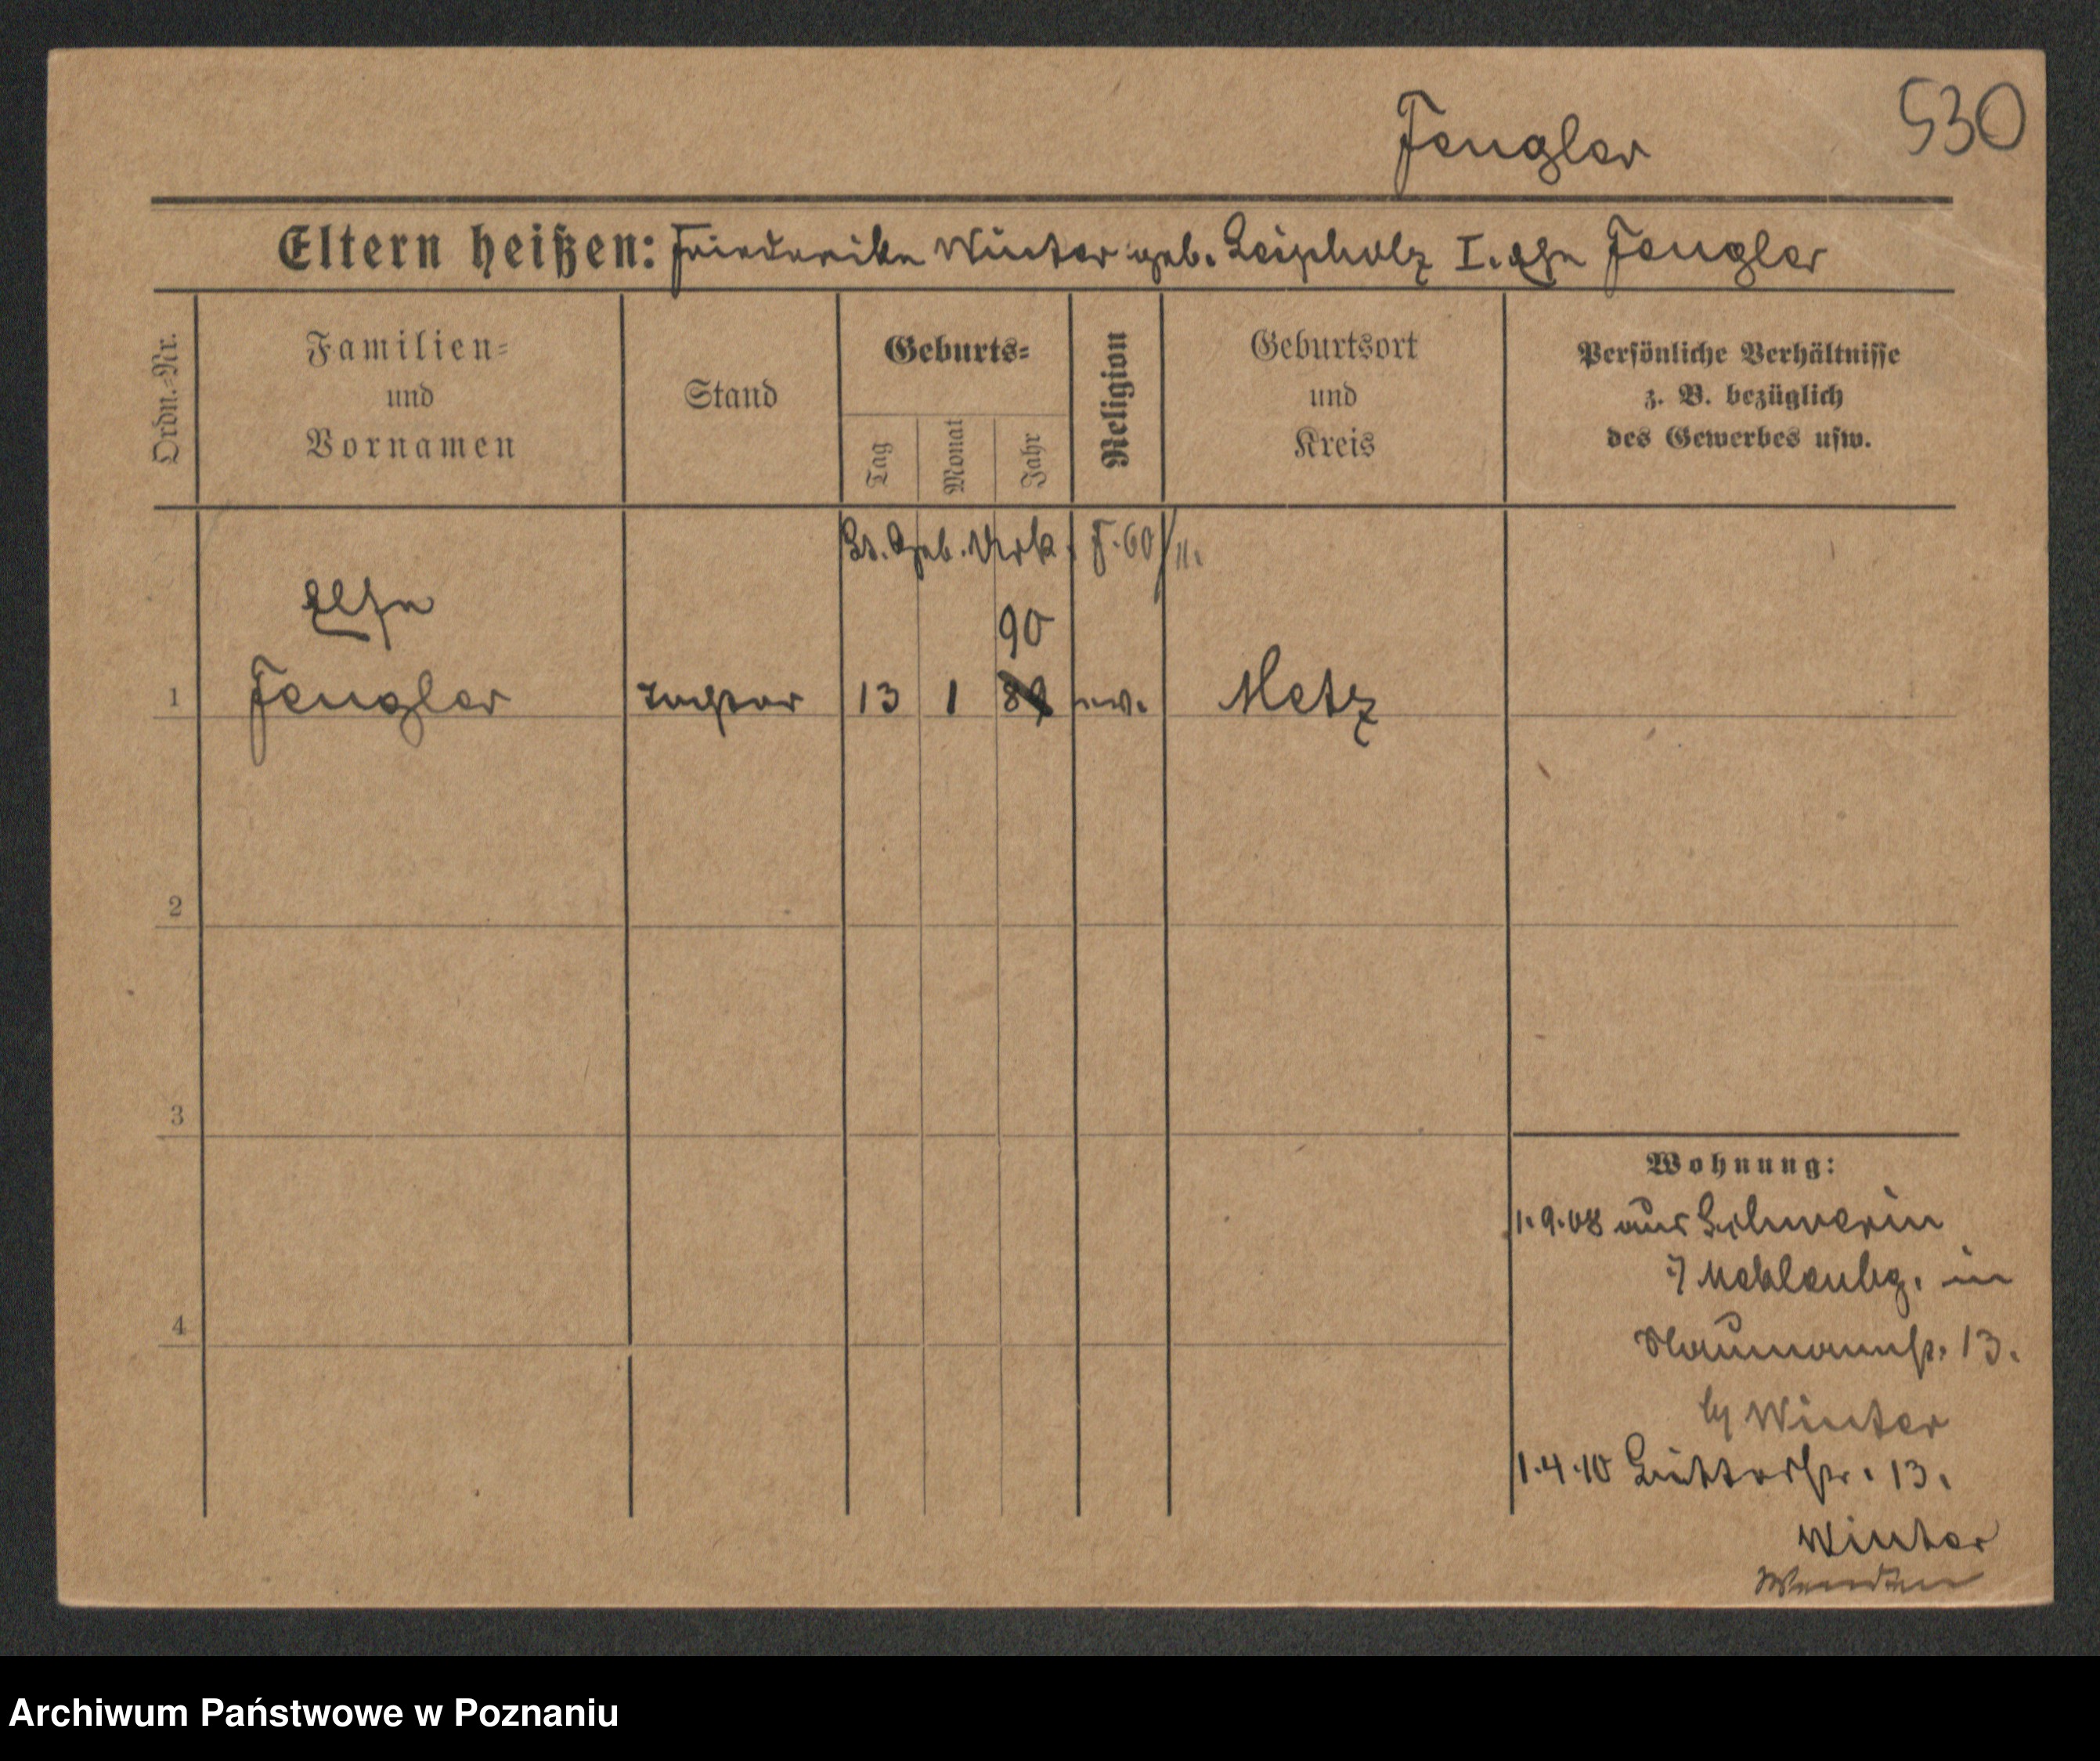 Fengler
530
Eltern heißen: Friederike Winter geb. Leipholz I. Ehe Fengler
Ordn.-Nr.
Familien-
und
Vornamen
Stand
Geburts-
Tag
Monat
Jahr
Religion
Geburtsort
und
Kreis
Persönliche Verhältnisse
z. B. bezüglich
des Gewerbes usw.
Lt. Geb. Urk. F. 60/11.
Else
90
1 Fengler Tochter 13 1 89 ev. Metz
2
3
4
Wohnung:
1.9.08 aus Schwerin
i/ Mecklenbg. in
Naumannstr. 13.
b/ Winter
1.4.10 13.
Winter
Wenden
Archiwum Państwowe w Poznaniu